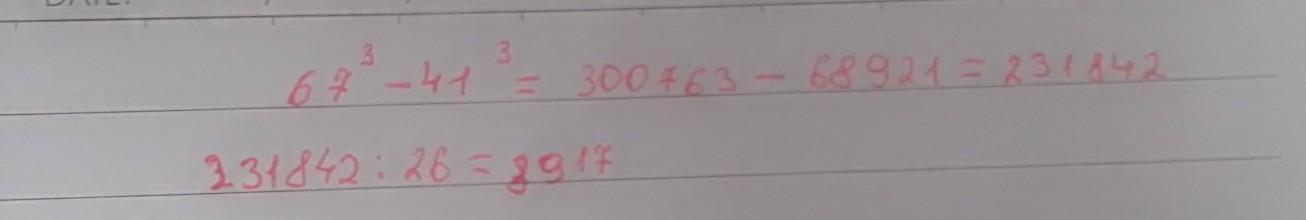 67³ - 41³ = 300763 - 68921 = 231842
231842 : 26 = 8917